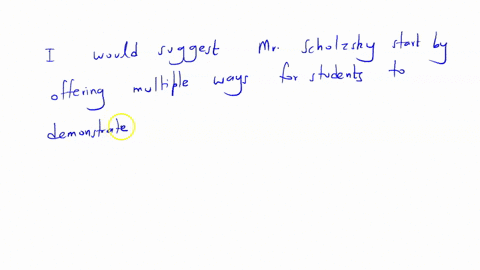 I would suggest Mr. Scholzsky start by
offering multiple ways for students to
demonstrate